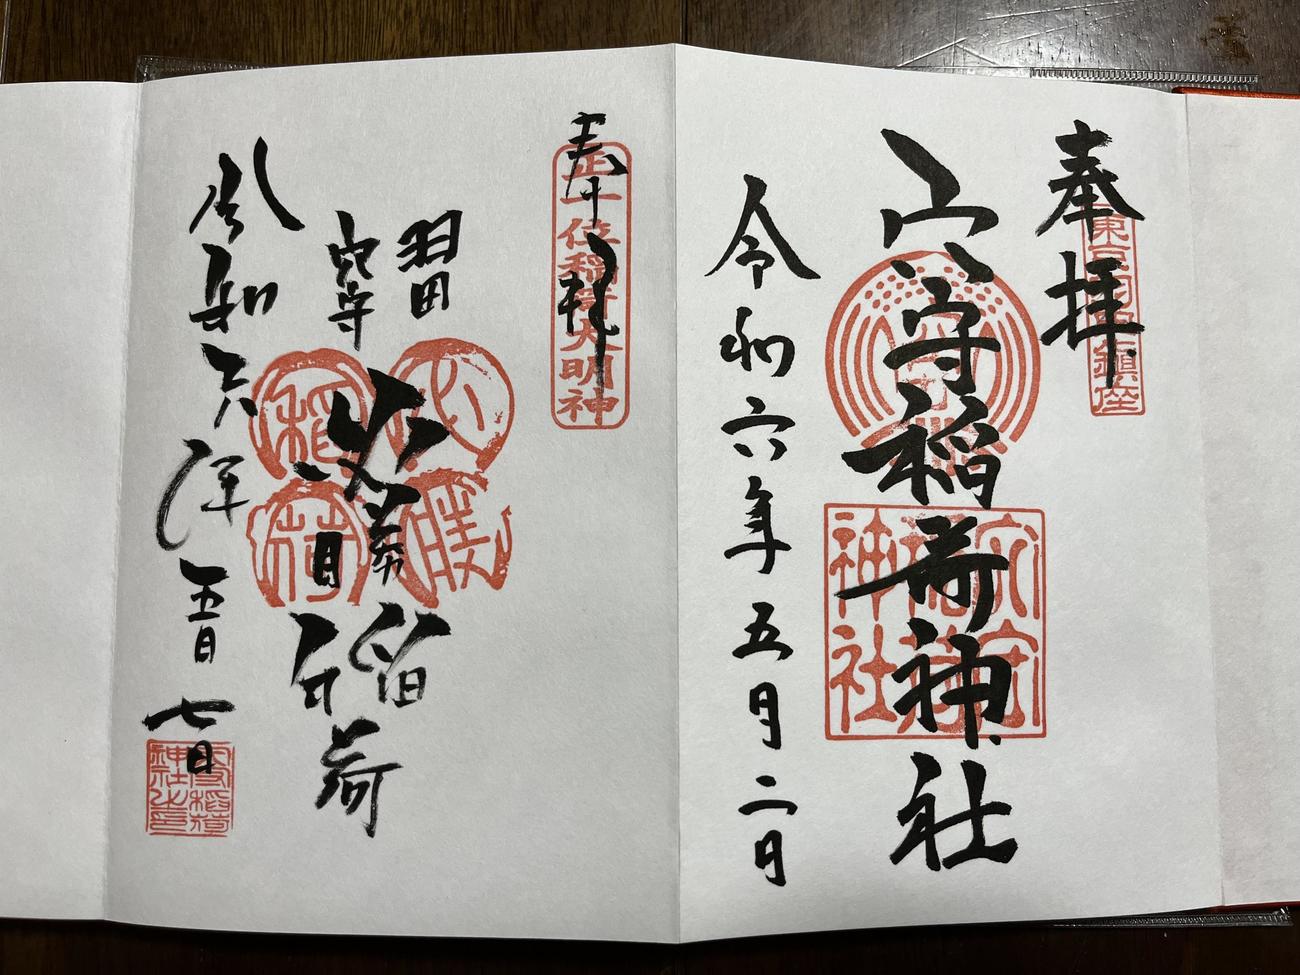 奉拝
東京羽田鎮座
穴守稲荷神社
穴守稲荷神社
令和六年五月二日
奉拝
正一位稲荷大明神
羽田
穴守
必勝稲荷
必勝稲荷
令和六年五月七日